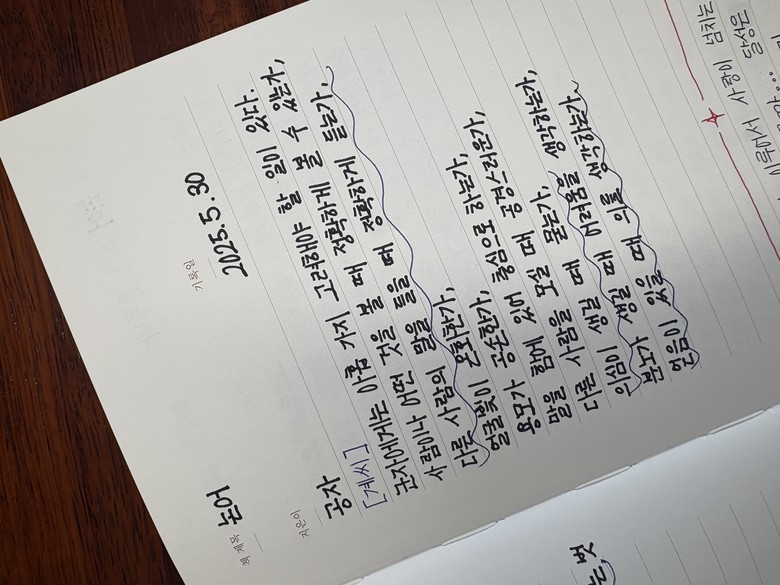 책 제목 논어
기록일 2025.5.30
지은이 공자
[계씨]
군자에게는 아홉 가지 고려해야 할 일이 있다.
사람이나 어떤 것을 볼 때 정확하게 볼 수 있는가,
다른 사람의 말을 들을 때 정확하게 듣는가,
얼굴빛이 온화한가,
용모가 공손한가,
말을 함에 있어 충심으로 하는가,
다른 사람을 모실 때 공경스러운가,
의심이 생길 때 묻는가,
분노가 생길 때 어려움을 생각하는가,
얻음이 있을 때 의를 생각하는가
사랑이 넘치는
달성은
벗